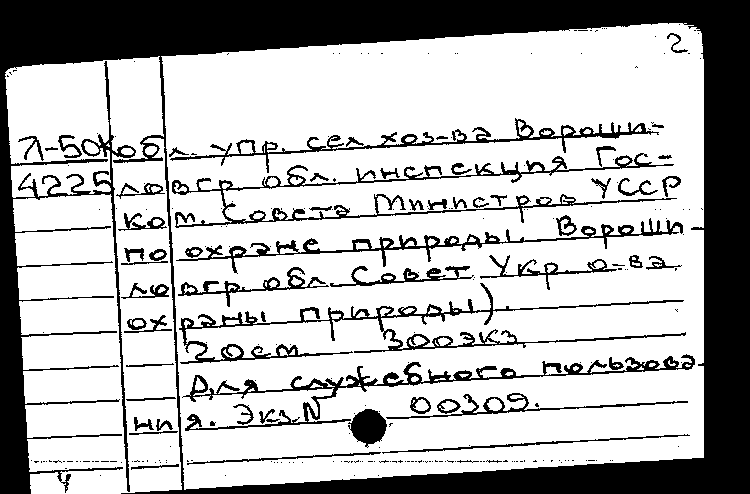 2
Л-50К обл. упр. сел. хоз-ва Вороши-
4225 ловгр. обл. инспекция Гос-
ком. Совета Министров УССР
по охране природы. Вороши-
ловгр. обл. Совет Укр. о-ва
охраны природы).
20см. 300экз.
Для служебного пользова-
ния. Экз.N 00309.
4